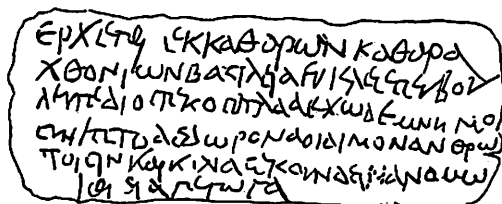 ΕΡΧΕΤΑΙ ΕΚ ΚΑΘΑΡΩΝ ΚΑΘΑΡΑ
ΧΘΟΝΙΩΝ ΒΑΣΙΛΕΙΑ ΕΥΚΛΕΕΣ ΕΥΒΟΥ
ΛΕΥ ΤΕ ΔΙΟΣ ΤΕΚΟΣ ΑΓΛΑΑ ΕΧΩ ΔΕ ΜΝΗΜΟ
ΣΥΝΗΣ ΤΟΔΕ ΔΩΡΟΝ ΑΟΙΔΙΜΟΝ ΑΝΘΡΩ
ΠΟΙΣΙΝ ΚΑΙΚΙΛΙΑ ΣΕΚΟΥΝΔΕΙΝΑ ΝΟΜΩ
ΙΘΙ ΔΙΑ ΓΕΓΩΣΑ